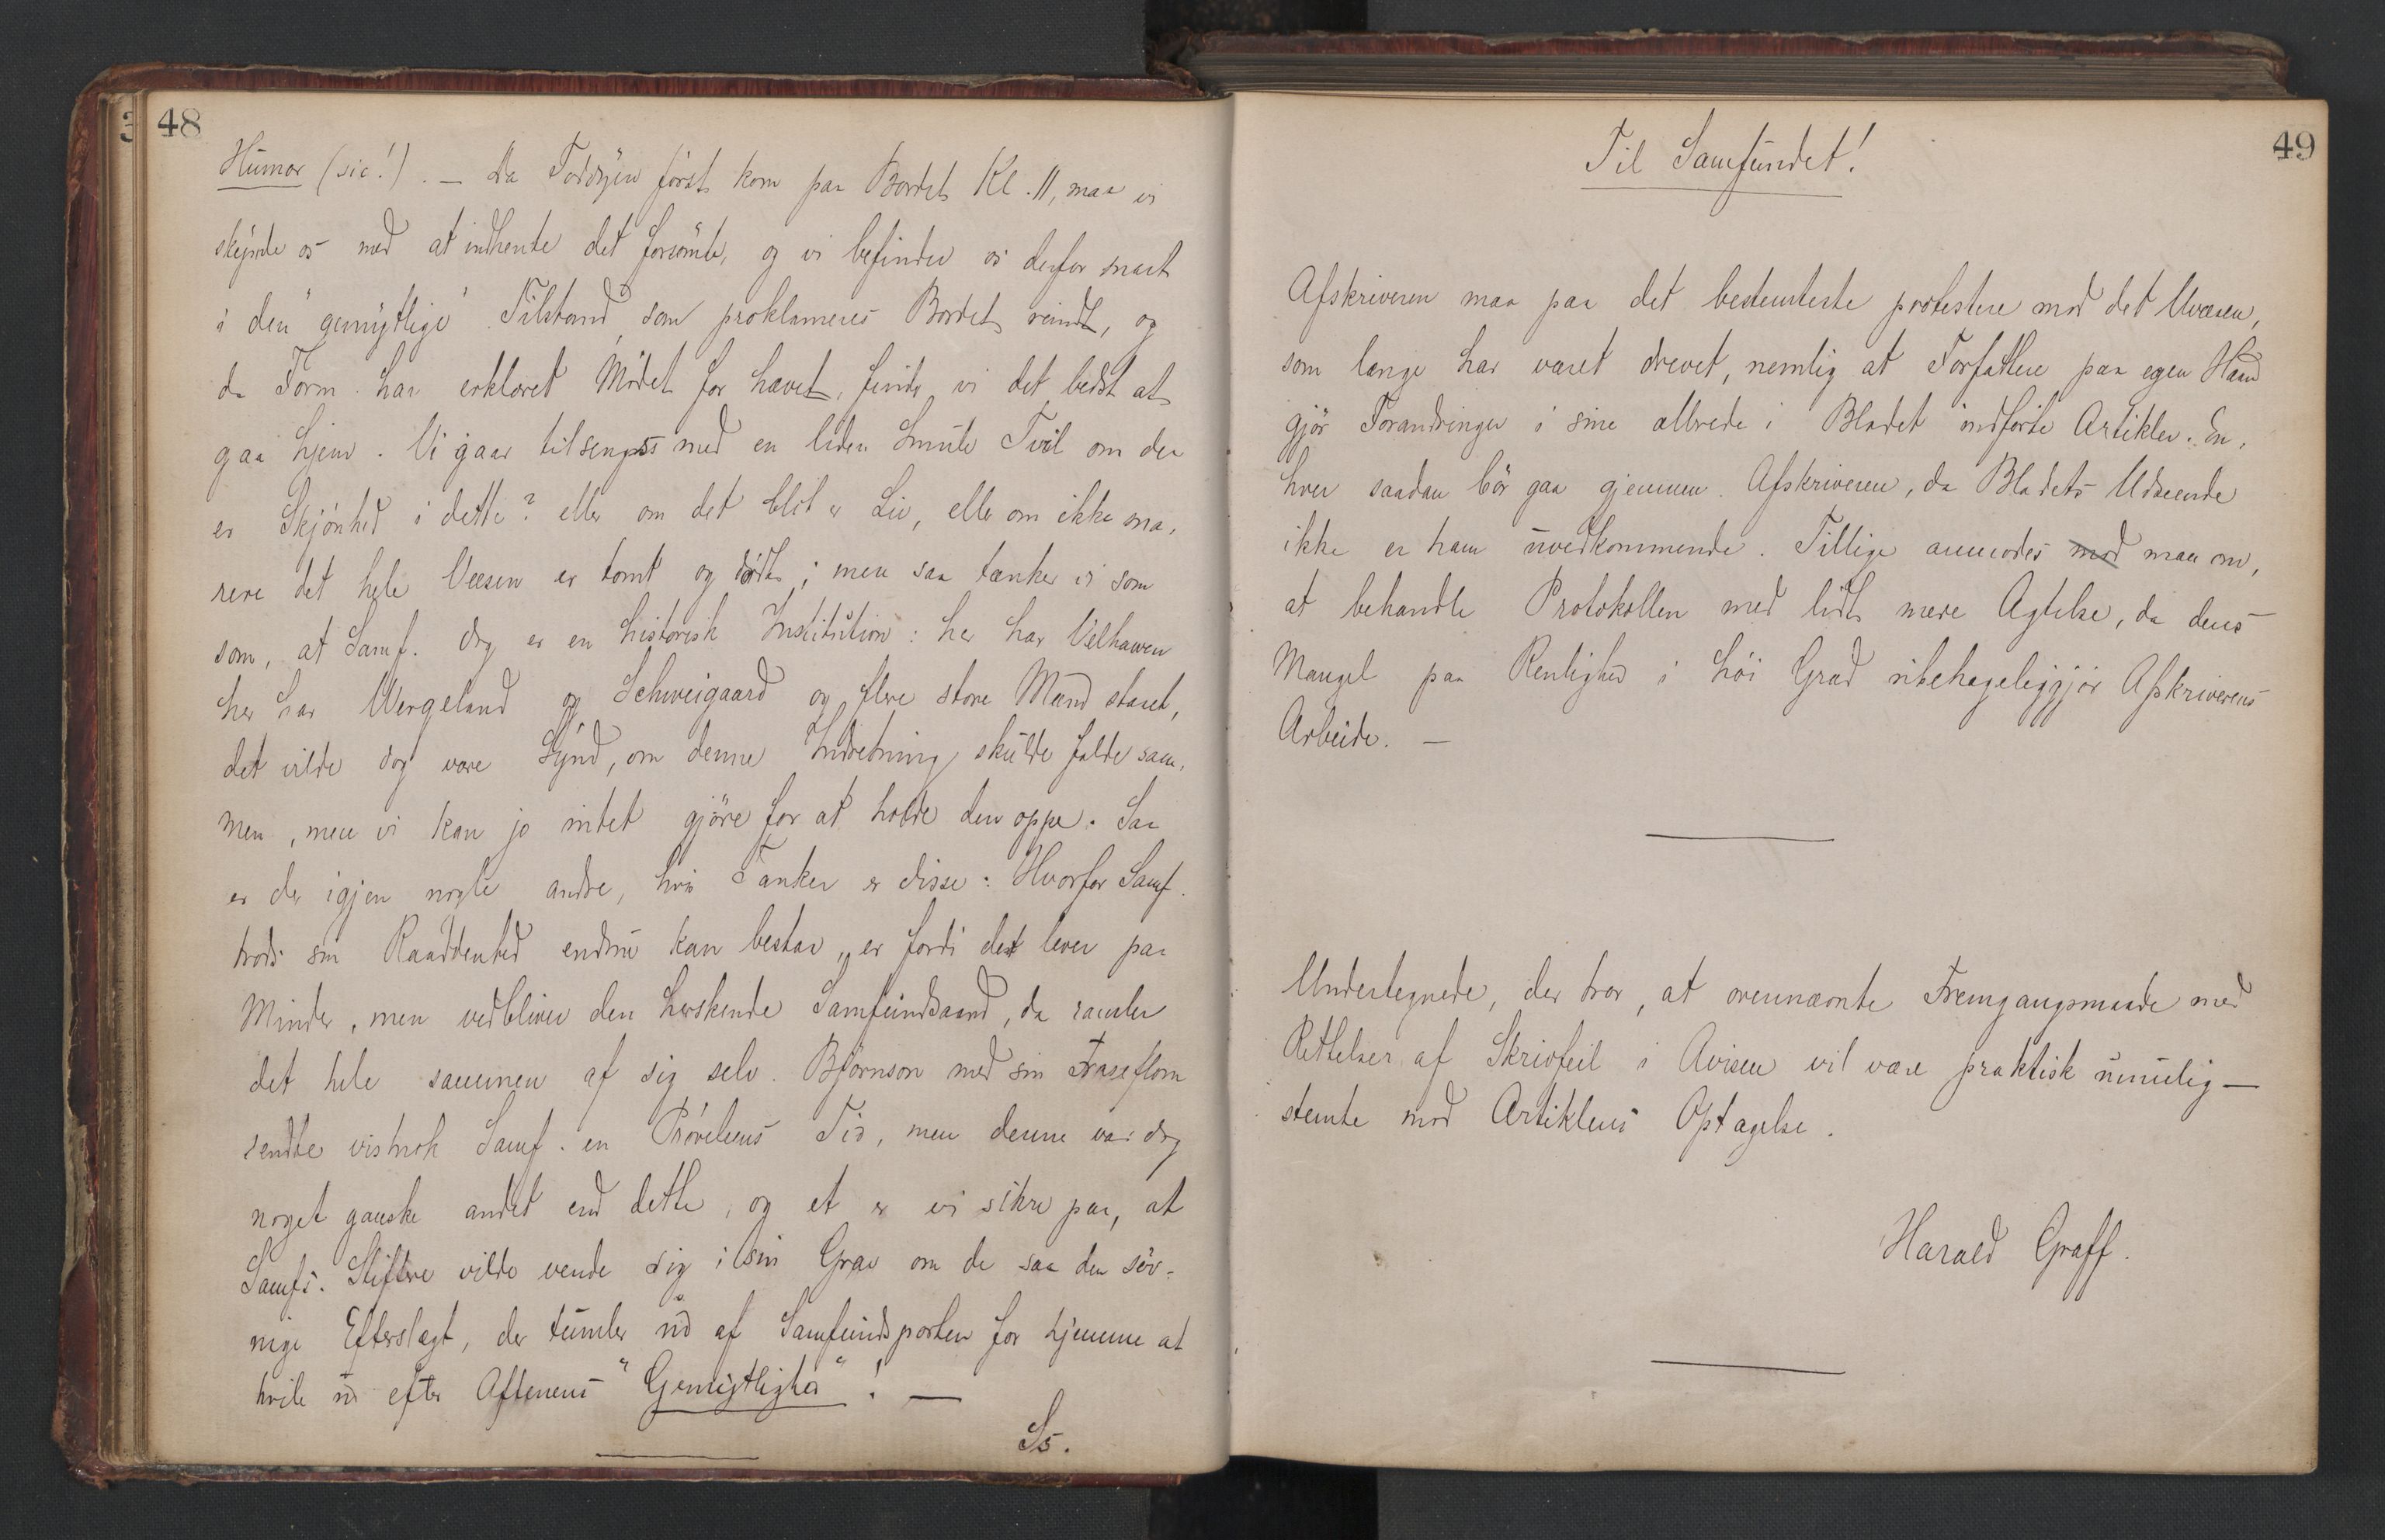 48
Humor (sic!). — Da Toddyen först kom paa Bordet Kl. 11, maa vi
skynde os med at indhente det forsömte, og vi befinder os derfor snart
i den "gemytlige" Tilstand, som proklameres Bordet rundt, og
da Form. har erklæret Mödet for hævet, finder vi det bedst at
gaa hjem. Vi gaar tilsengs med en liden Smule Tvil om der
er Skjönhed i dette? eller om det blot er Liv, eller om ikke sna-
rere det hele Væsen er tomt og dödt; men saa tænker vi som
som, at Samf. dog er en historisk Institution: her har Velhaven
her har Wergeland og Schweigaard og flere store Mænd staaet,
det vilde dog være Synd, om denne Indretning skulde falde sam-
men, men vi kan jo intet gjöre for at holde den oppe. Saa
er der igjen nogle andre, hvis Tanker er disse: Hvorfor Samf.
trods sin Raaddenhed endnu kan bestaa, er fordi det lever paa
Minder, men vedbliver den herskende Samfundsaand, da ramler
det hele sammen af sig selv. Björnson med sin Fraseflom
sendte vistnok Samf. en Prövelsens Tid, men denne var dog
noget ganske andet end dette, og et er vi sikre paa, at
Samfs. Stiftere vilde vende sig i sin Grav om de saa den söv-
nige Efterslægt, der tumler ud af Samfundsporten for hjemme at
hvile ud efter Aftenens "Gemytlighed"! —
Ss.
49
Til Samfundet!
Afskriveren maa paa det bestemteste protestere mod det Uvæsen,
som længe har været drevet, nemlig at Forfattere paa egen Haand
gjör Forandringer i sine allerede i Bladet indförte Artikler. En-
hver saadan bör gaa gjennem Afskriveren, da Bladets Udseende
ikke er ham uvedkommende. Tillige anmodes mod man om,
at behandle Protokollen med lidt mere Agtelse, da dens
Mangel paa Renlighed i höi Grad ubehageliggjör Afskriverens
Arbeide. —
Undertegnede, der tror, at ovennævnte Fremgangsmaade med
Rettelser af Skrivfeil i Avisen vil være praktisk umulig —
stemte mod Artiklens Optagelse.
Harald Graff.